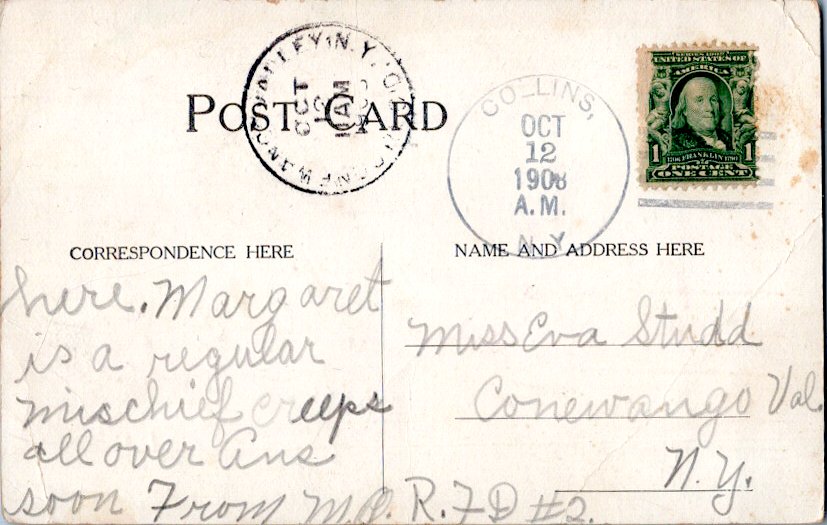 POST CARD
CONEWANGO VALLEY, N.Y.
OCT
12
11 AM
COLLINS,
OCT
12
1908
A.M.
N.Y.
SERIES 1902
UNITED STATES OF
AMERICA
1 1706 FRANKLIN 1790 1
POSTAGE
ONE CENT
CORRESPONDENCE HERE
here. Margaret
is a regular
mischief creeps
all over Ans
soon From M.O.
NAME AND ADDRESS HERE
Miss Eva Studd
Conewango Val.
N.Y.
R.F.D #2.